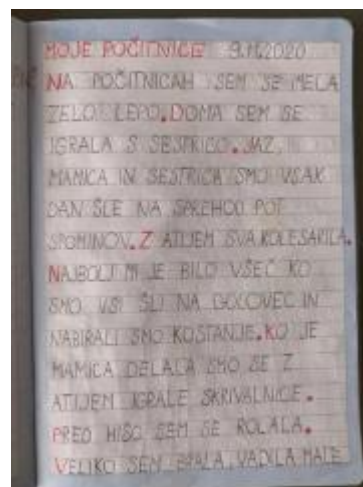 MOJE POČITNICE 9.11.2020
NA POČITNICAH SEM SE MELA
ZELO LEPO. DOMA SEM SE
IGRALA S SESTRICO. JAZ,
MAMICA IN SESTRICA SMO VSAK
DAN ŠLE NA SPREHOD POT
SPOMINOV. Z ATIJEM SVA KOLESARILA.
NAJBOLT MI JE BILO VŠEČ KO
SMO VSI ŠLI NA GOLOVEC IN
NABIRALI SMO KOSTANJE. KO JE
MAMICA DELALA SMO SE Z
ATIJEM IGRALE SKRIVALNICE.
PRED HIŠO SEM SE ROLALA.
VELIKO SEM BRALA, VADILA MALE